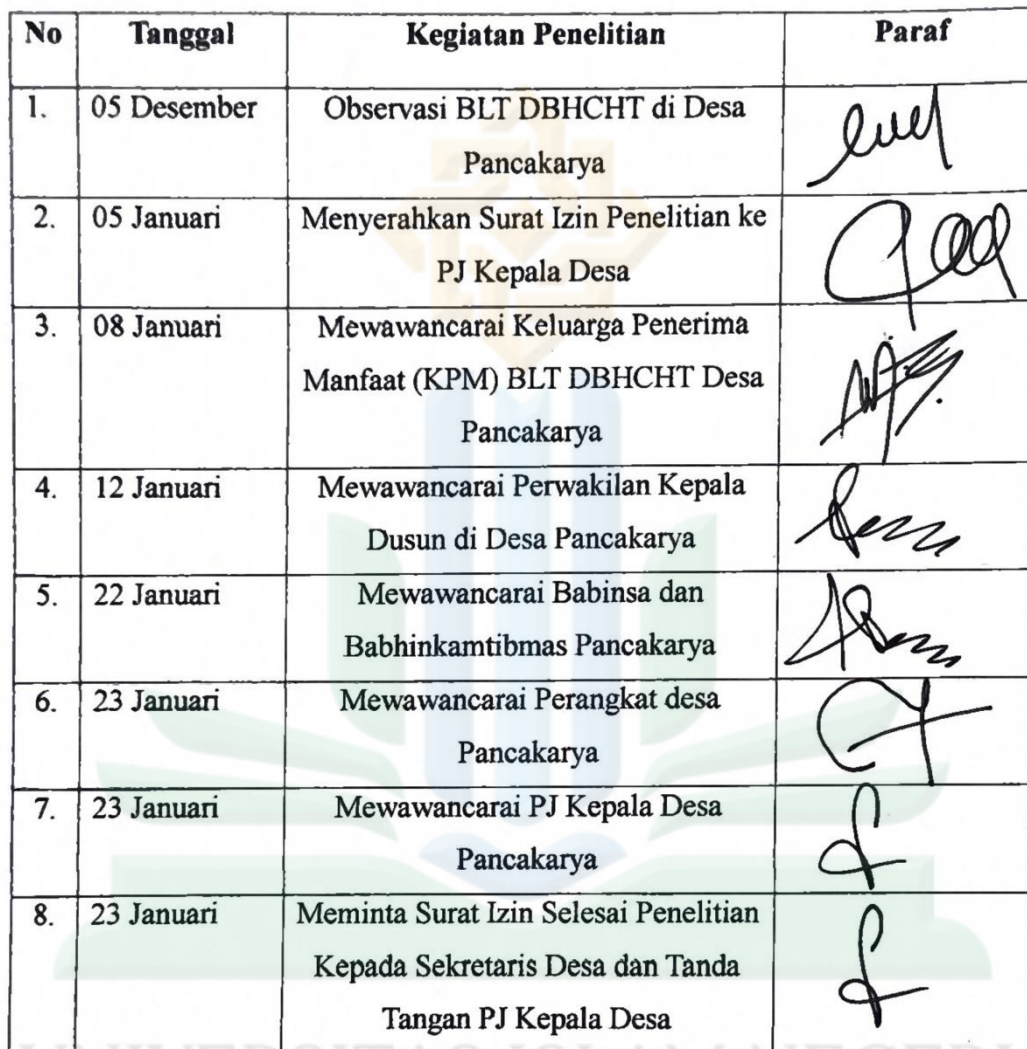 No Tanggal Kegiatan Penelitian Paraf
1. 05 Desember Observasi BLT DBHCHT di Desa
Pancakarya
2. 05 Januari Menyerahkan Surat Izin Penelitian ke
PJ Kepala Desa
3. 08 Januari Mewawancarai Keluarga Penerima
Manfaat (KPM) BLT DBHCHT Desa
Pancakarya
4. 12 Januari Mewawancarai Perwakilan Kepala
Dusun di Desa Pancakarya
5. 22 Januari Mewawancarai Babinsa dan
Babhinkamtibmas Pancakarya
6. 23 Januari Mewawancarai Perangkat desa
Pancakarya
7. 23 Januari Mewawancarai PJ Kepala Desa
Pancakarya
8. 23 Januari Meminta Surat Izin Selesai Penelitian
Kepada Sekretaris Desa dan Tanda
Tangan PJ Kepala Desa
UNIVERSITAS ISLAM NEGERI